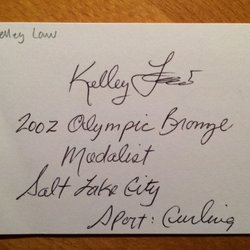 Kelley Law
Kelley Law
2002 Olympic Bronze
Medalist
Salt Lake City
Sport: Curling